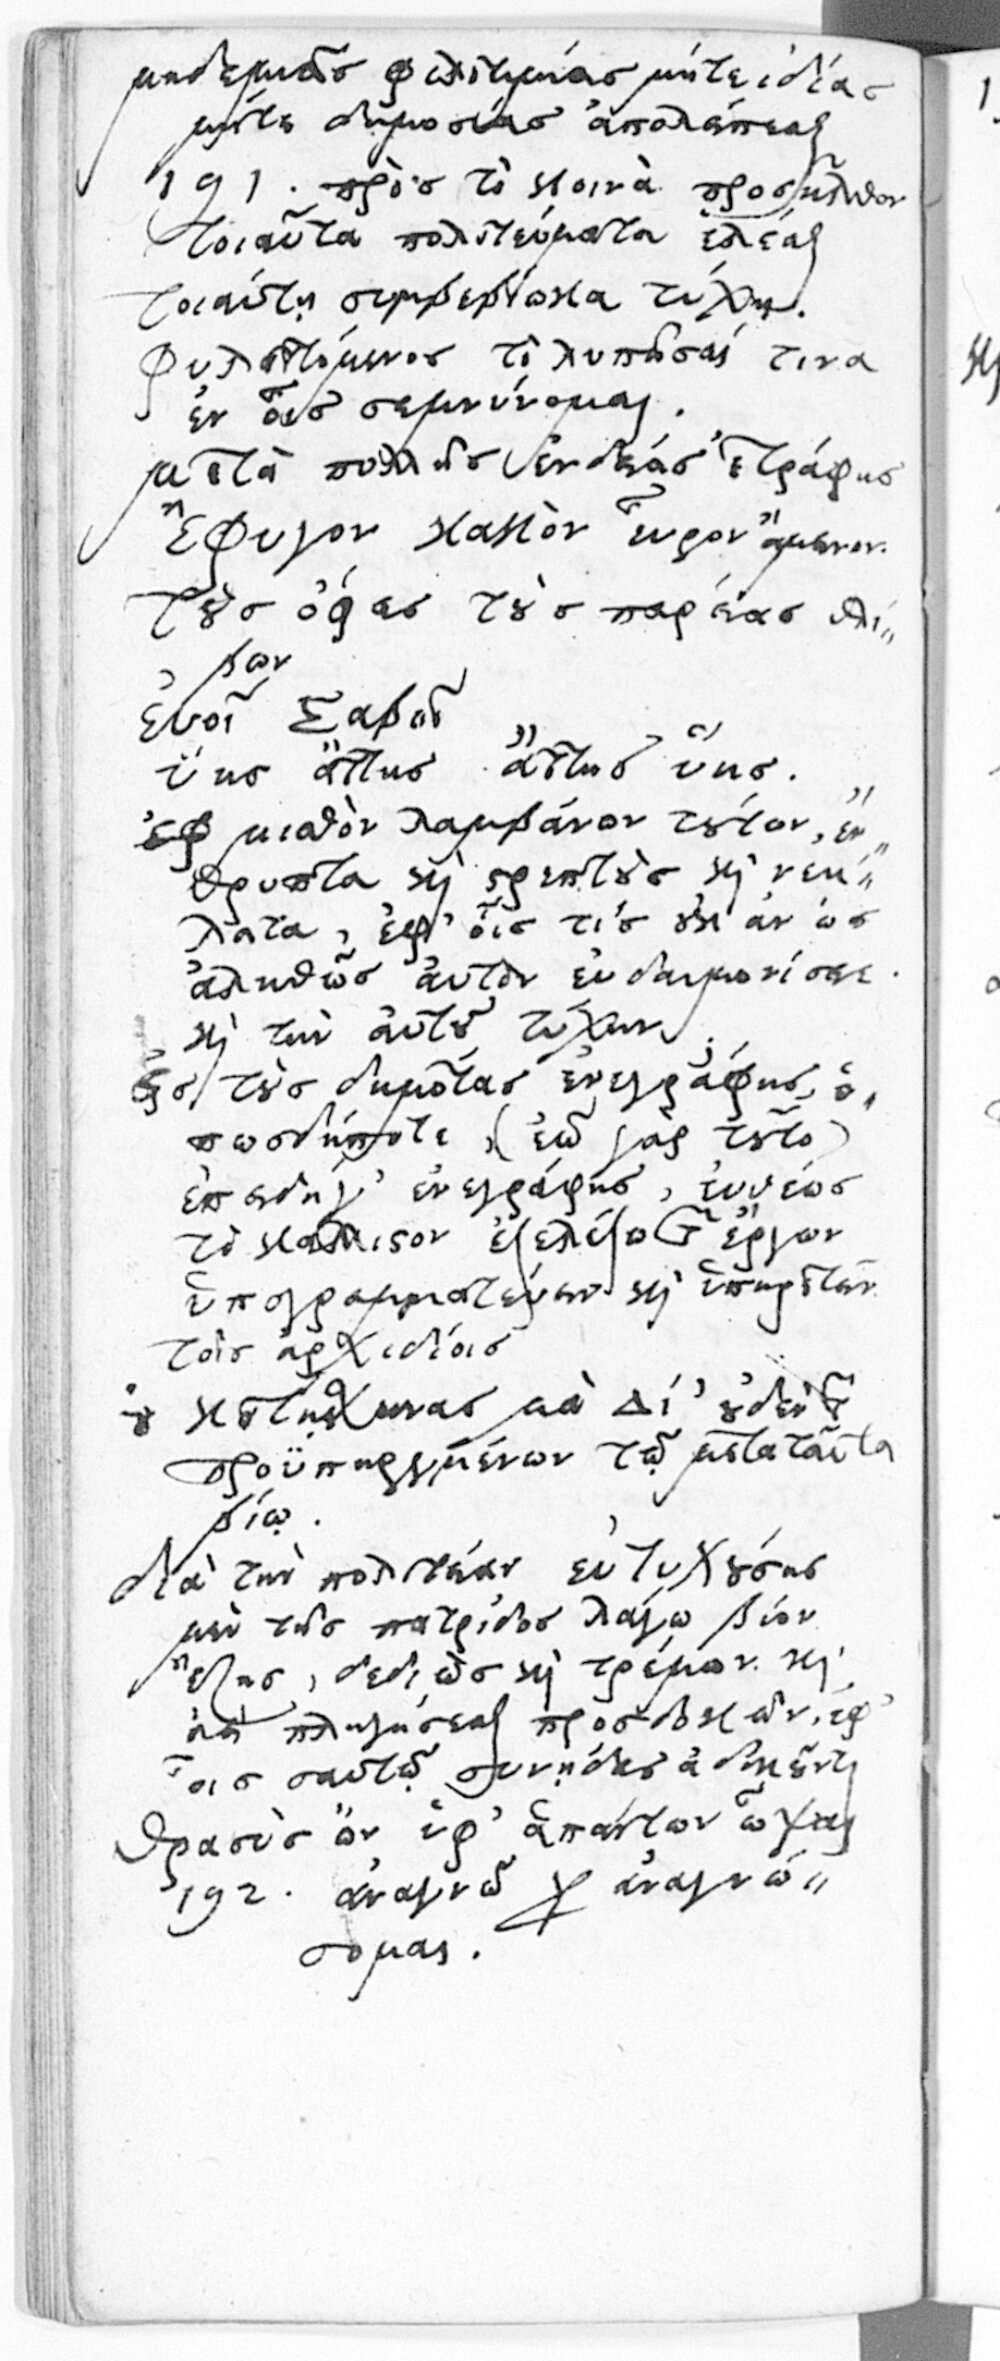 μηδεμιᾶς φιλοτιμίας μήτε ἰδίας
μήτε δημοσίας ἀπολείπεσθαι
191. πρὸς τὰ κοινὰ προσῆλθον
τοιαῦτα πολιτεύματα ἑλέσθαι
τοιαύτῃ συμβεβίωκα τύχῃ.
φυλαττόμενος τὸ λυπῆσαί τινα
ἐν οἷς σεμνύνομαι.
μετὰ πολλῆς ἐνδείας ἐτράφης
ἔφυγον κακὸν εὗρον ἄμεινον.
τοὺς ὄφεις τοὺς παρείας θλί„
βων
εὐοῖ Σαβοῖ
ὕης ἄττης ἄττης ὕης.
μισθὸν λαμβάνων τούτων, ἔν„
θρυπτα καὶ στρεπτοὺς καὶ νεή„
λατα, ἐφ' οἷς τίς οὐκ ἂν ὡς
ἀληθῶς αὐτὸν εὐδαιμονίσειε
καὶ τὴν αὑτοῦ τύχην.
εἰς τοὺς δημότας ἐνεγράφης, ὁ„
πωσδήποτε, (ἐῶ γὰρ τοῦτο)
ἐπειδή γ' ἐνεγράφης, εὐθέως
τὸ κάλλιστον ἐξελέξω τῶν ἔργων
ὑπογραμματεύειν καὶ ὑπηρετεῖν
τοῖς ἀρχιδίοις
οὐ κατῄσχυνας μὰ Δί' οὐδὲν τῶν
προϋπηργμένων τῷ μετὰ ταῦτα
βίῳ.
διὰ τὴν πολιτείαν εὐτυχούσης
μὲν τῆς πατρίδος λαγὼ βίον
ἔζης, δεδιὼς καὶ τρέμων καὶ
ἀεὶ πληγήσεσθαι προσδοκῶν, ἐφ'
οἷς σαυτῷ συνῄδεις ἀδικοῦντι
θρασὺς ὢν ὑφ' ἁπάντων ὦψαι
192. ἀναγνῶ ἀναγνώ„
σομαι.